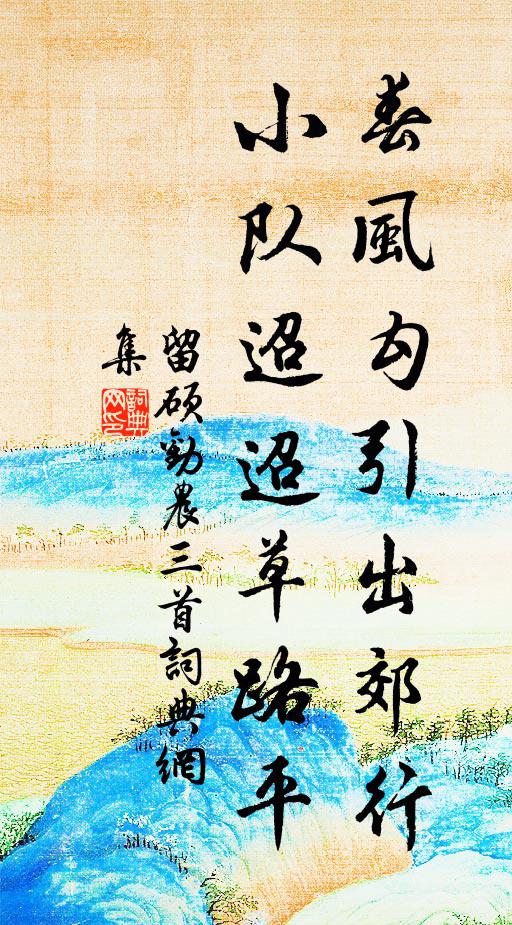 春風勾引出郊行
小队迢迢草路平
留硕勸農三首詞典網
集
詞典
网印